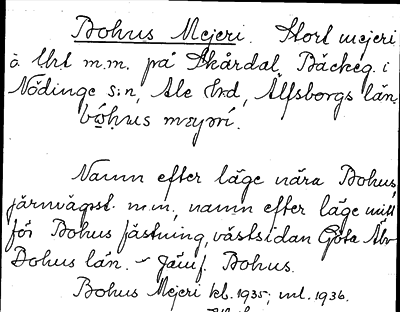 Bohus Mejeri. Stort mejeri
å lht m.m. på Skårdal, Bäckeg. i
Nödinge s:n, Ale hrd, Älfsborgs län.
mejeri.
Namn efter läge nära Bohus
järnvägsst. m.m., namn efter läge mitt
för Bohus fästning, västsidan Göta Älv
Bohus län. - Jämf. Bohus.
Bohus Mejeri kl. 1935; ml. 1936.